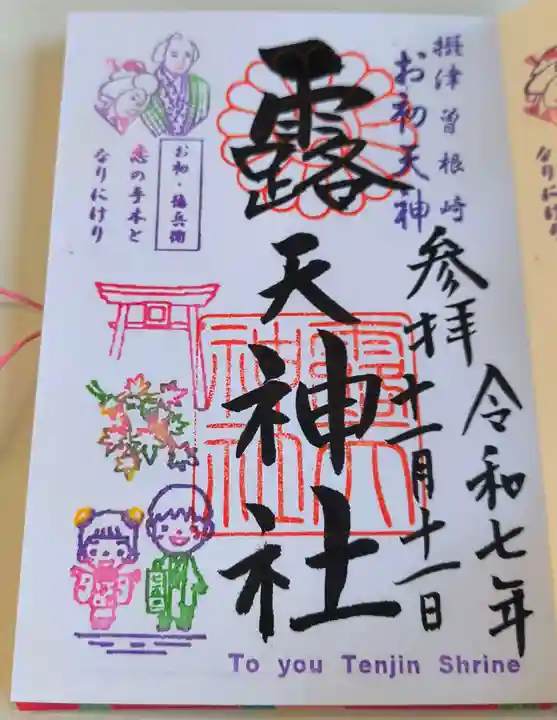 摂津曽根崎
お初天神
参拝
令和七年
十一月十一日
露天神社
お初・徳兵衛
恋の手本と
なりにけり
露天
神社
To you Tenjin Shrine
なりにけり